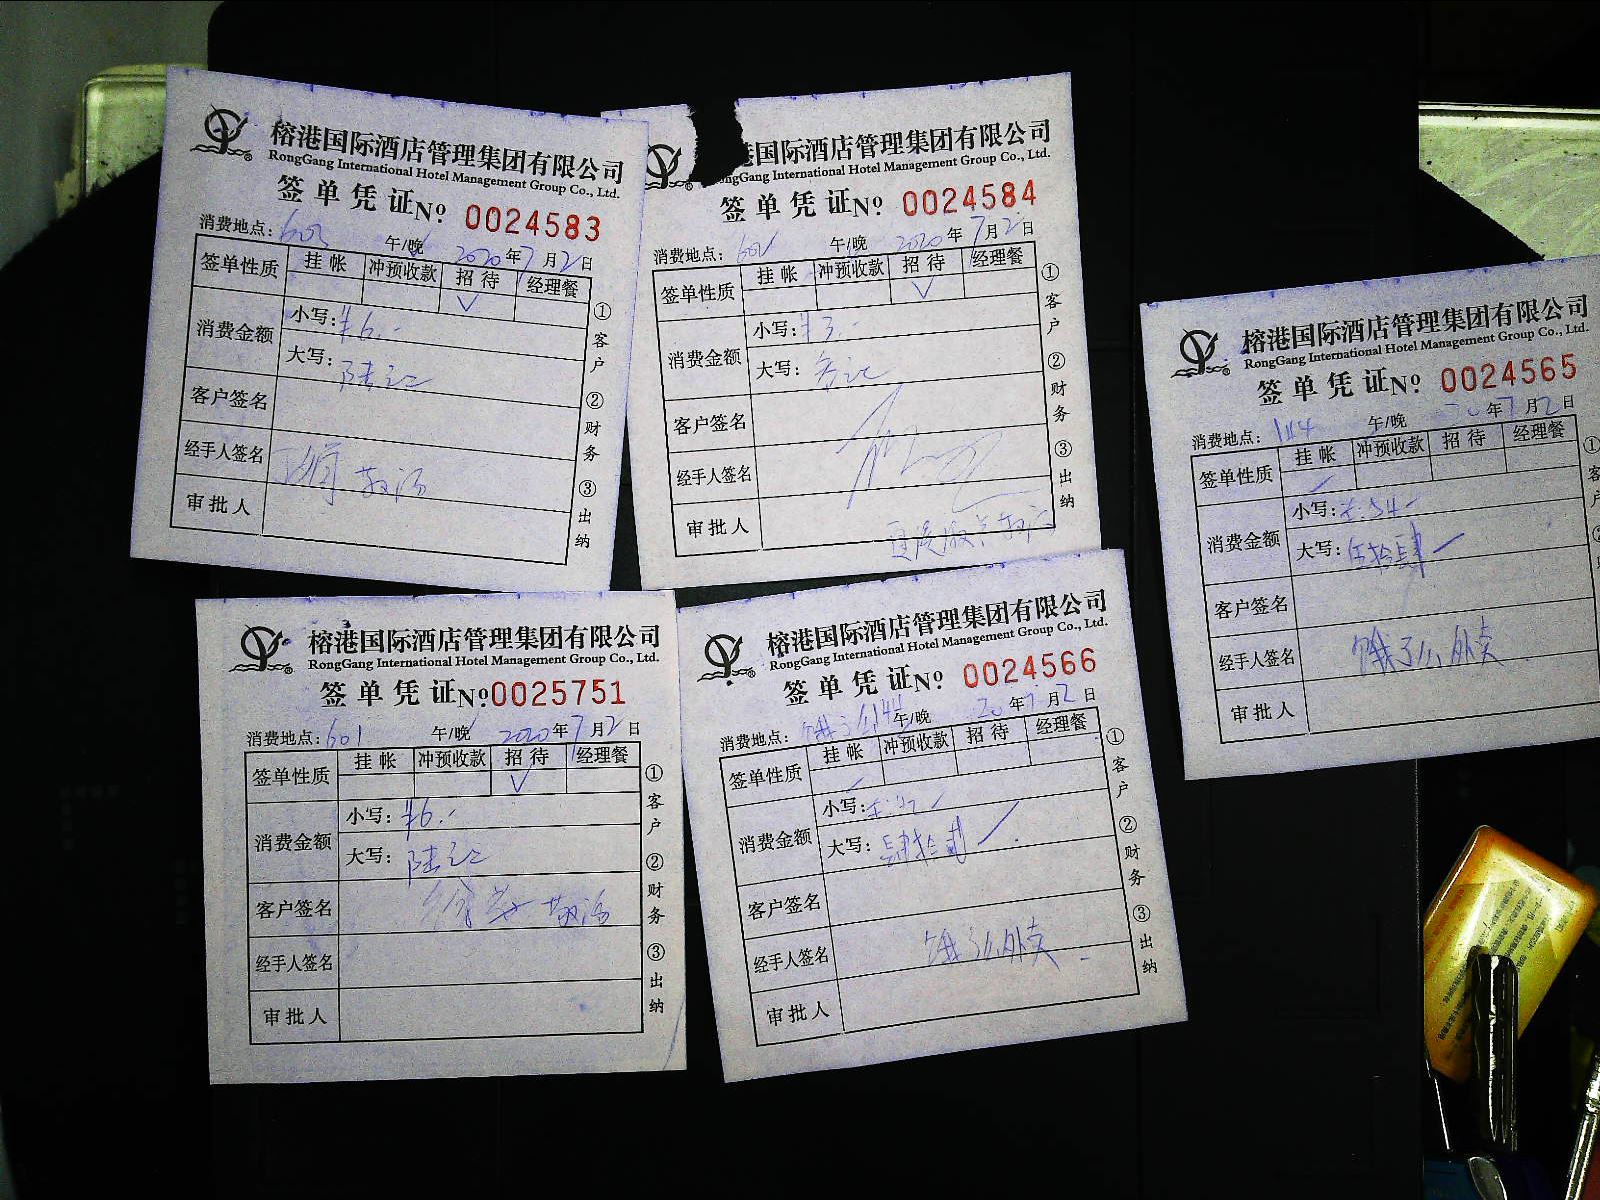 榕港国际酒店管理集团有限公司
RongGang International Hotel Management Group Co., Ltd.
签单凭证№ 0024583
消费地点: 603 午/晚 2020年7月2日
签单性质 挂帐 冲预收款 招待 经理餐
√
消费金额 小写: ¥6.-
大写: 陆元
客户签名
经手人签名
审批人
①客户 ②财务 ③出纳
国际酒店管理集团有限公司
ngGang International Hotel Management Group Co., Ltd.
签单凭证№ 0024584
消费地点: 601 午/晚 2020年7月2日
签单性质 挂帐 冲预收款 招待 经理餐
√
消费金额 小写: ¥3.-
大写:
客户签名
经手人签名
审批人
①客户 ②财务 ③出纳
榕港国际酒店管理集团有限公司
RongGang International Hotel Management Group Co., Ltd.
签单凭证№ 0024565
消费地点: 114 午/晚 20年7月2日
签单性质 挂帐 冲预收款 招待 经理餐
消费金额 小写: ¥:54-
大写: 伍拾肆
客户签名
经手人签名 饿了么外卖
审批人
①
榕港国际酒店管理集团有限公司
RongGang International Hotel Management Group Co., Ltd.
签单凭证№ 0025751
消费地点: 601 午/晚 2020年7月2日
签单性质 挂帐 冲预收款 招待 经理餐
√
消费金额 小写: ¥6.-
大写: 陆元
客户签名
经手人签名
审批人
①客户 ②财务 ③出纳
榕港国际酒店管理集团有限公司
RongGang International Hotel Management Group Co., Ltd.
签单凭证№ 0024566
消费地点: 饿了么 午/晚 20年7月2日
签单性质 挂帐 冲预收款 招待 经理餐
消费金额 小写:
大写: 肆拾贰
客户签名
经手人签名 饿了么外卖
审批人
①客户 ②财务 ③出纳